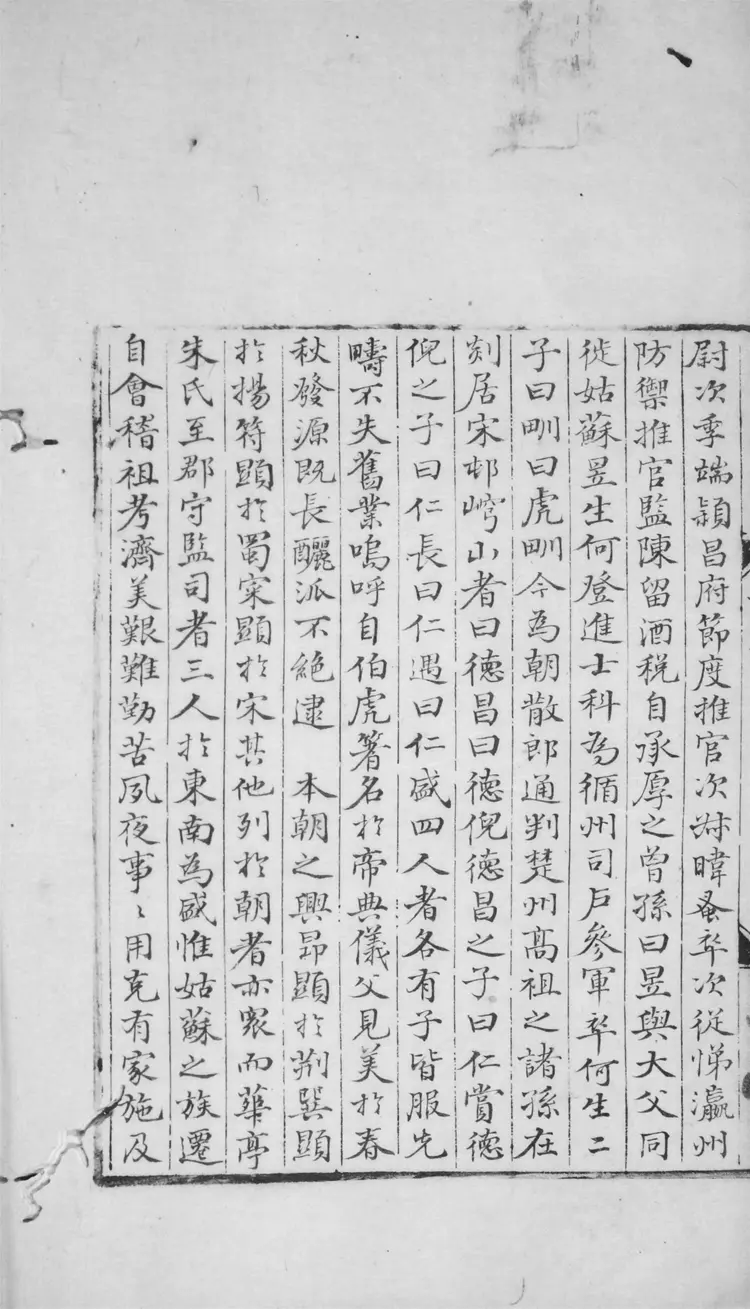 尉次季端潁昌府節度推官次㝷暐蚤卒次從悌瀛州
防禦推官監陳留酒稅自承厚之曾孫曰昱與大父同
徙姑蘇昱生何登進士科為循州司戶參軍卒何生二
子曰甽曰虎甽今為朝散郎通判楚州高祖之諸孫在
剡居宋邨崿山者曰德昌曰德倪德昌之子曰仁賞德
倪之子曰仁長曰仁遇曰仁盛四人者各有子皆服先
疇不失舊業嗚呼自伯虎著名於帝典儀父見美於春
秋發源既長釃派不絕逮 本朝之興昂顯於荊巽顯
於揚符顯於蜀寀顯於宋其他列於朝者亦衆而華亭
朱氏至郡守監司者三人於東南為盛惟姑蘇之族遷
自會稽祖考濟美艱難勤苦夙夜事〻用克有家施及